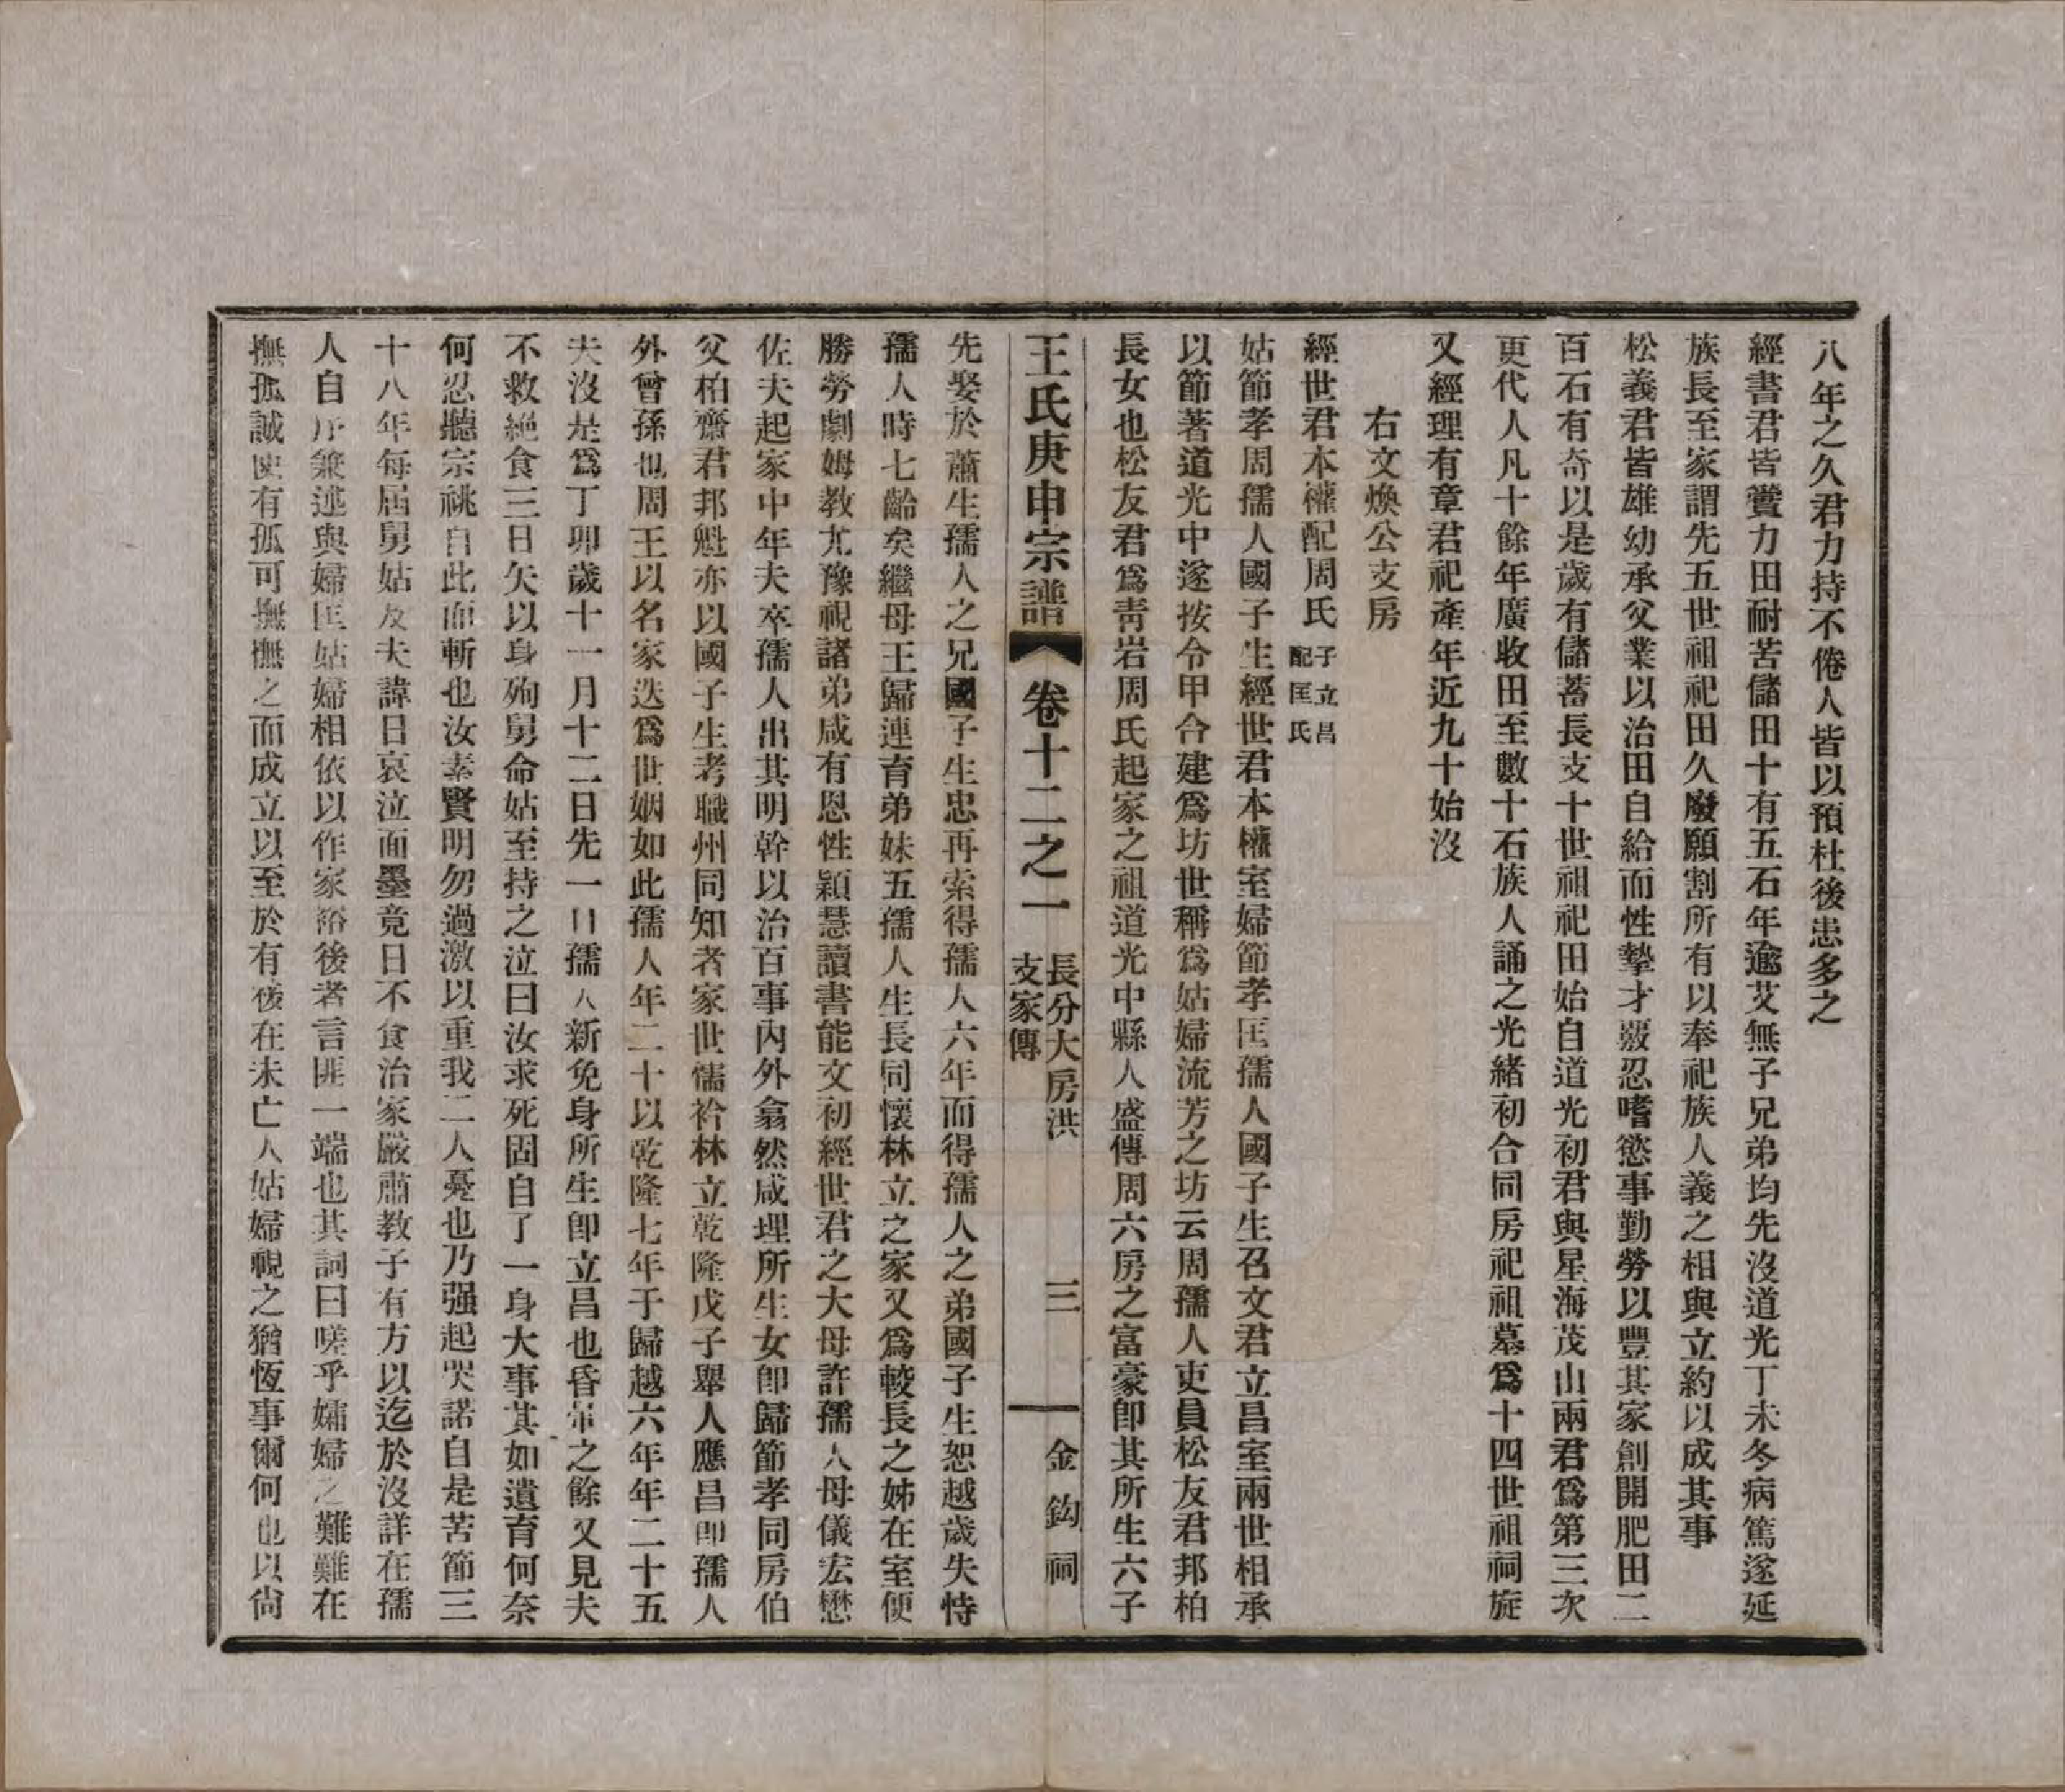 八年之久君力持不倦人皆以預杜後患多之
經書君皆賣力田耐苦儲田十有五石年逾艾無子兄弟均先沒道光丁未冬病篤遂延
族長至家謂先五世祖祀田久廢願割所有以奉祀族人義之相與立約以成其事
松義君皆雄幼承父業以治田自給而性摯才毅忍嗜慾事勤勞以豐其家創開肥田二
百石有奇以是歲有儲蓄長支十世祖祀田始自道光初君與星海茂山兩君爲第三次
更代人凡十餘年廣收田至數十石族人誦之光緒初合同房祀祖墓爲十四世祖祠旋
又經理有章君祀產年近九十始沒
右文煥公支房
經世君本權配周氏 子立昌配匡氏
姑節孝周孺人國子生經世君本權室婦節孝匡孺人國子生召文君立昌室兩世相承
以節著道光中遂按令甲合建爲坊世稱爲姑婦流芳之坊云周孺人吏員松友君邦柏
長女也松友君爲靑岩周氏起家之祖道光中縣人盛傳周六房之富豪卽其所生六子
王氏庚申宗譜 卷十二之一 長分大房洪支家傳 三 金鈎祠
先娶於蕭生孺人之兄國子生忠再索得孺人六年而得孺人之弟國子生恕越歲失恃
孺人時七齡矣繼母王歸連育弟妹五孺人生長同懷林立之家又爲較長之姊在室便
勝勞劇姆教尤豫視諸弟咸有恩性穎慧讀書能文初經世君之大母許孺人母儀宏懋
佐夫起家中年夫卒孺人出其明幹以治百事內外翕然咸理所生女卽歸節孝同房伯
父柏齋君邦魁亦以國子生考職州同知者家世儒衿林立乾隆戊子舉人應昌卽孺人
外曾孫也周王以名家迭爲世姻如此孺人年二十以乾隆七年于歸越六年年二十五
夫沒是爲丁卯歲十一月十二日先一日孺人新免身所生卽立昌也昏帘之餘又見夫
不救絕食三日矢以身殉舅命姑至持之泣曰汝求死固自了一身大事其如遺育何奈
何忍聽宗祧自此而斬也汝素賢明勿過激以重我二人憂也乃强起哭諾自是苦節三
十八年每屆舅姑及夫諱日哀泣面墨竟日不食治家嚴肅教子有方以迄於沒詳在孺
人自序兼述與婦匡姑婦相依以作家裕後者言匪一端也其詞曰嗟乎孀婦之難難在
撫孤誠使有孤可撫撫之而成立以至於有後在未亡人姑婦視之猶恆事爾何也以尙